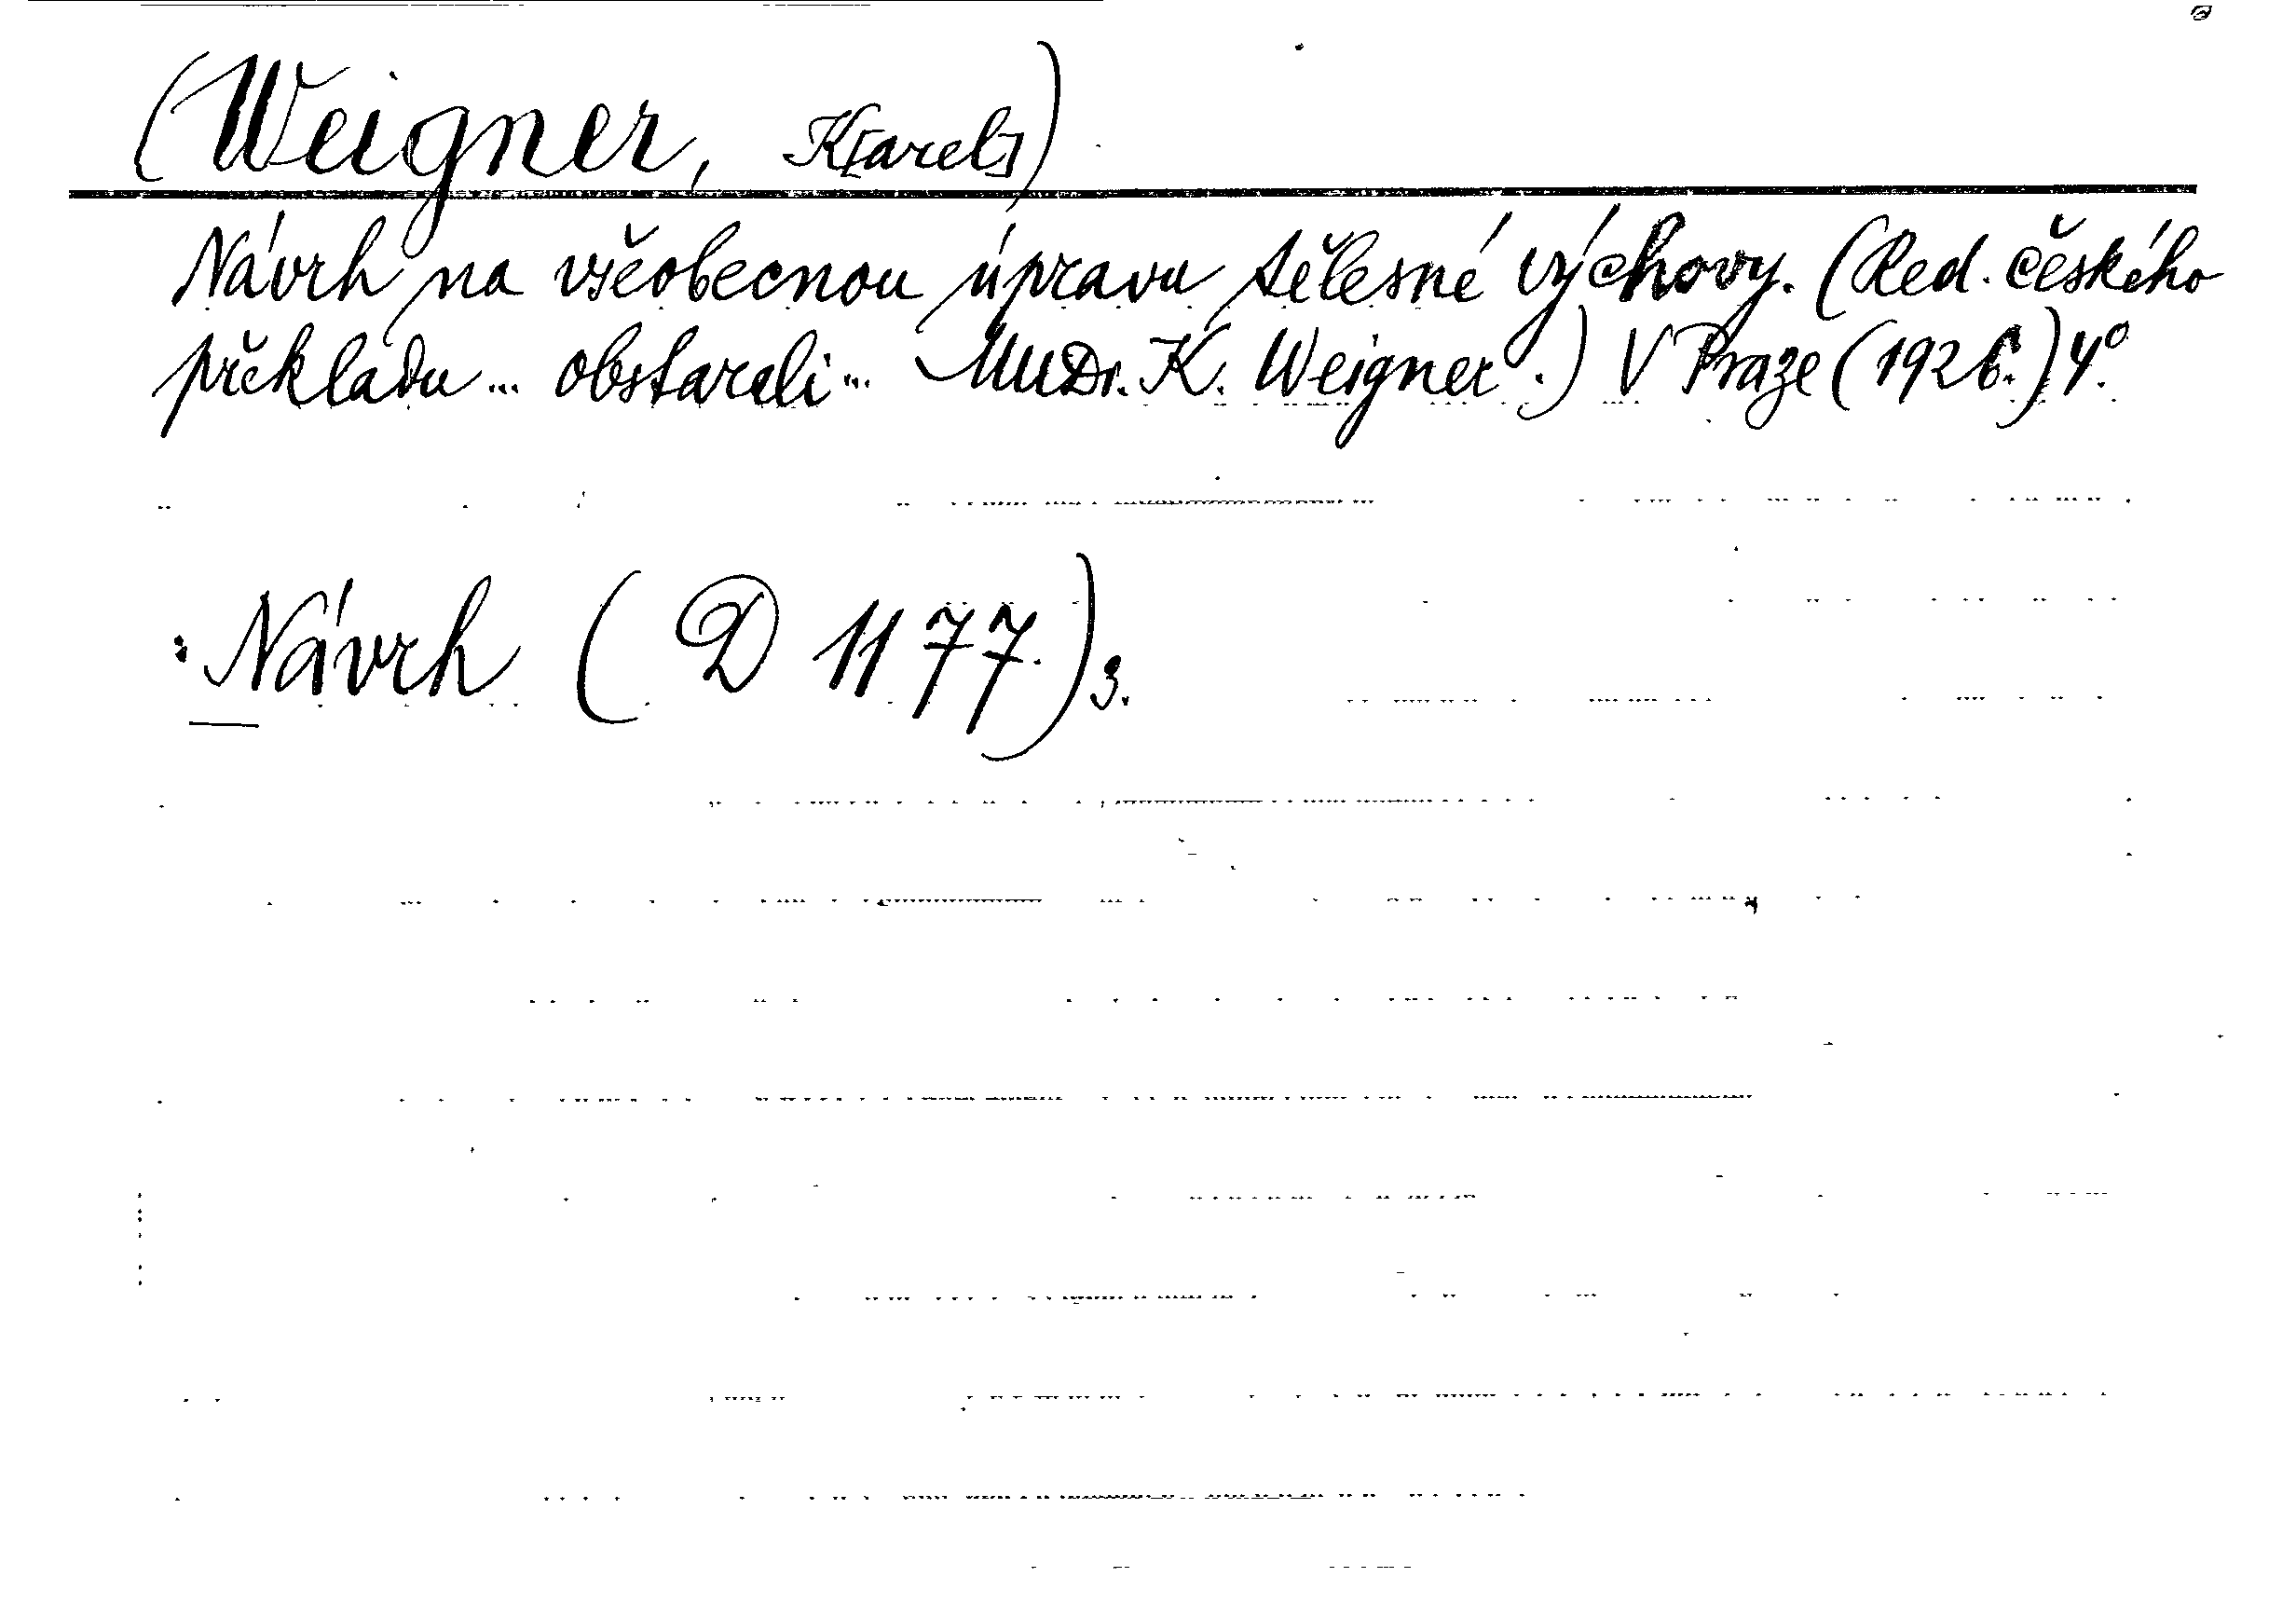 (Weigner, K[arel])
Návrh na všeobecnou úpravu tělesné výchovy. (Red. českého
překladu ... obstarali ... MUDr. K. Weigner.) V Praze (1926.) 4°.
: Návrh ( D 1177.) 3.